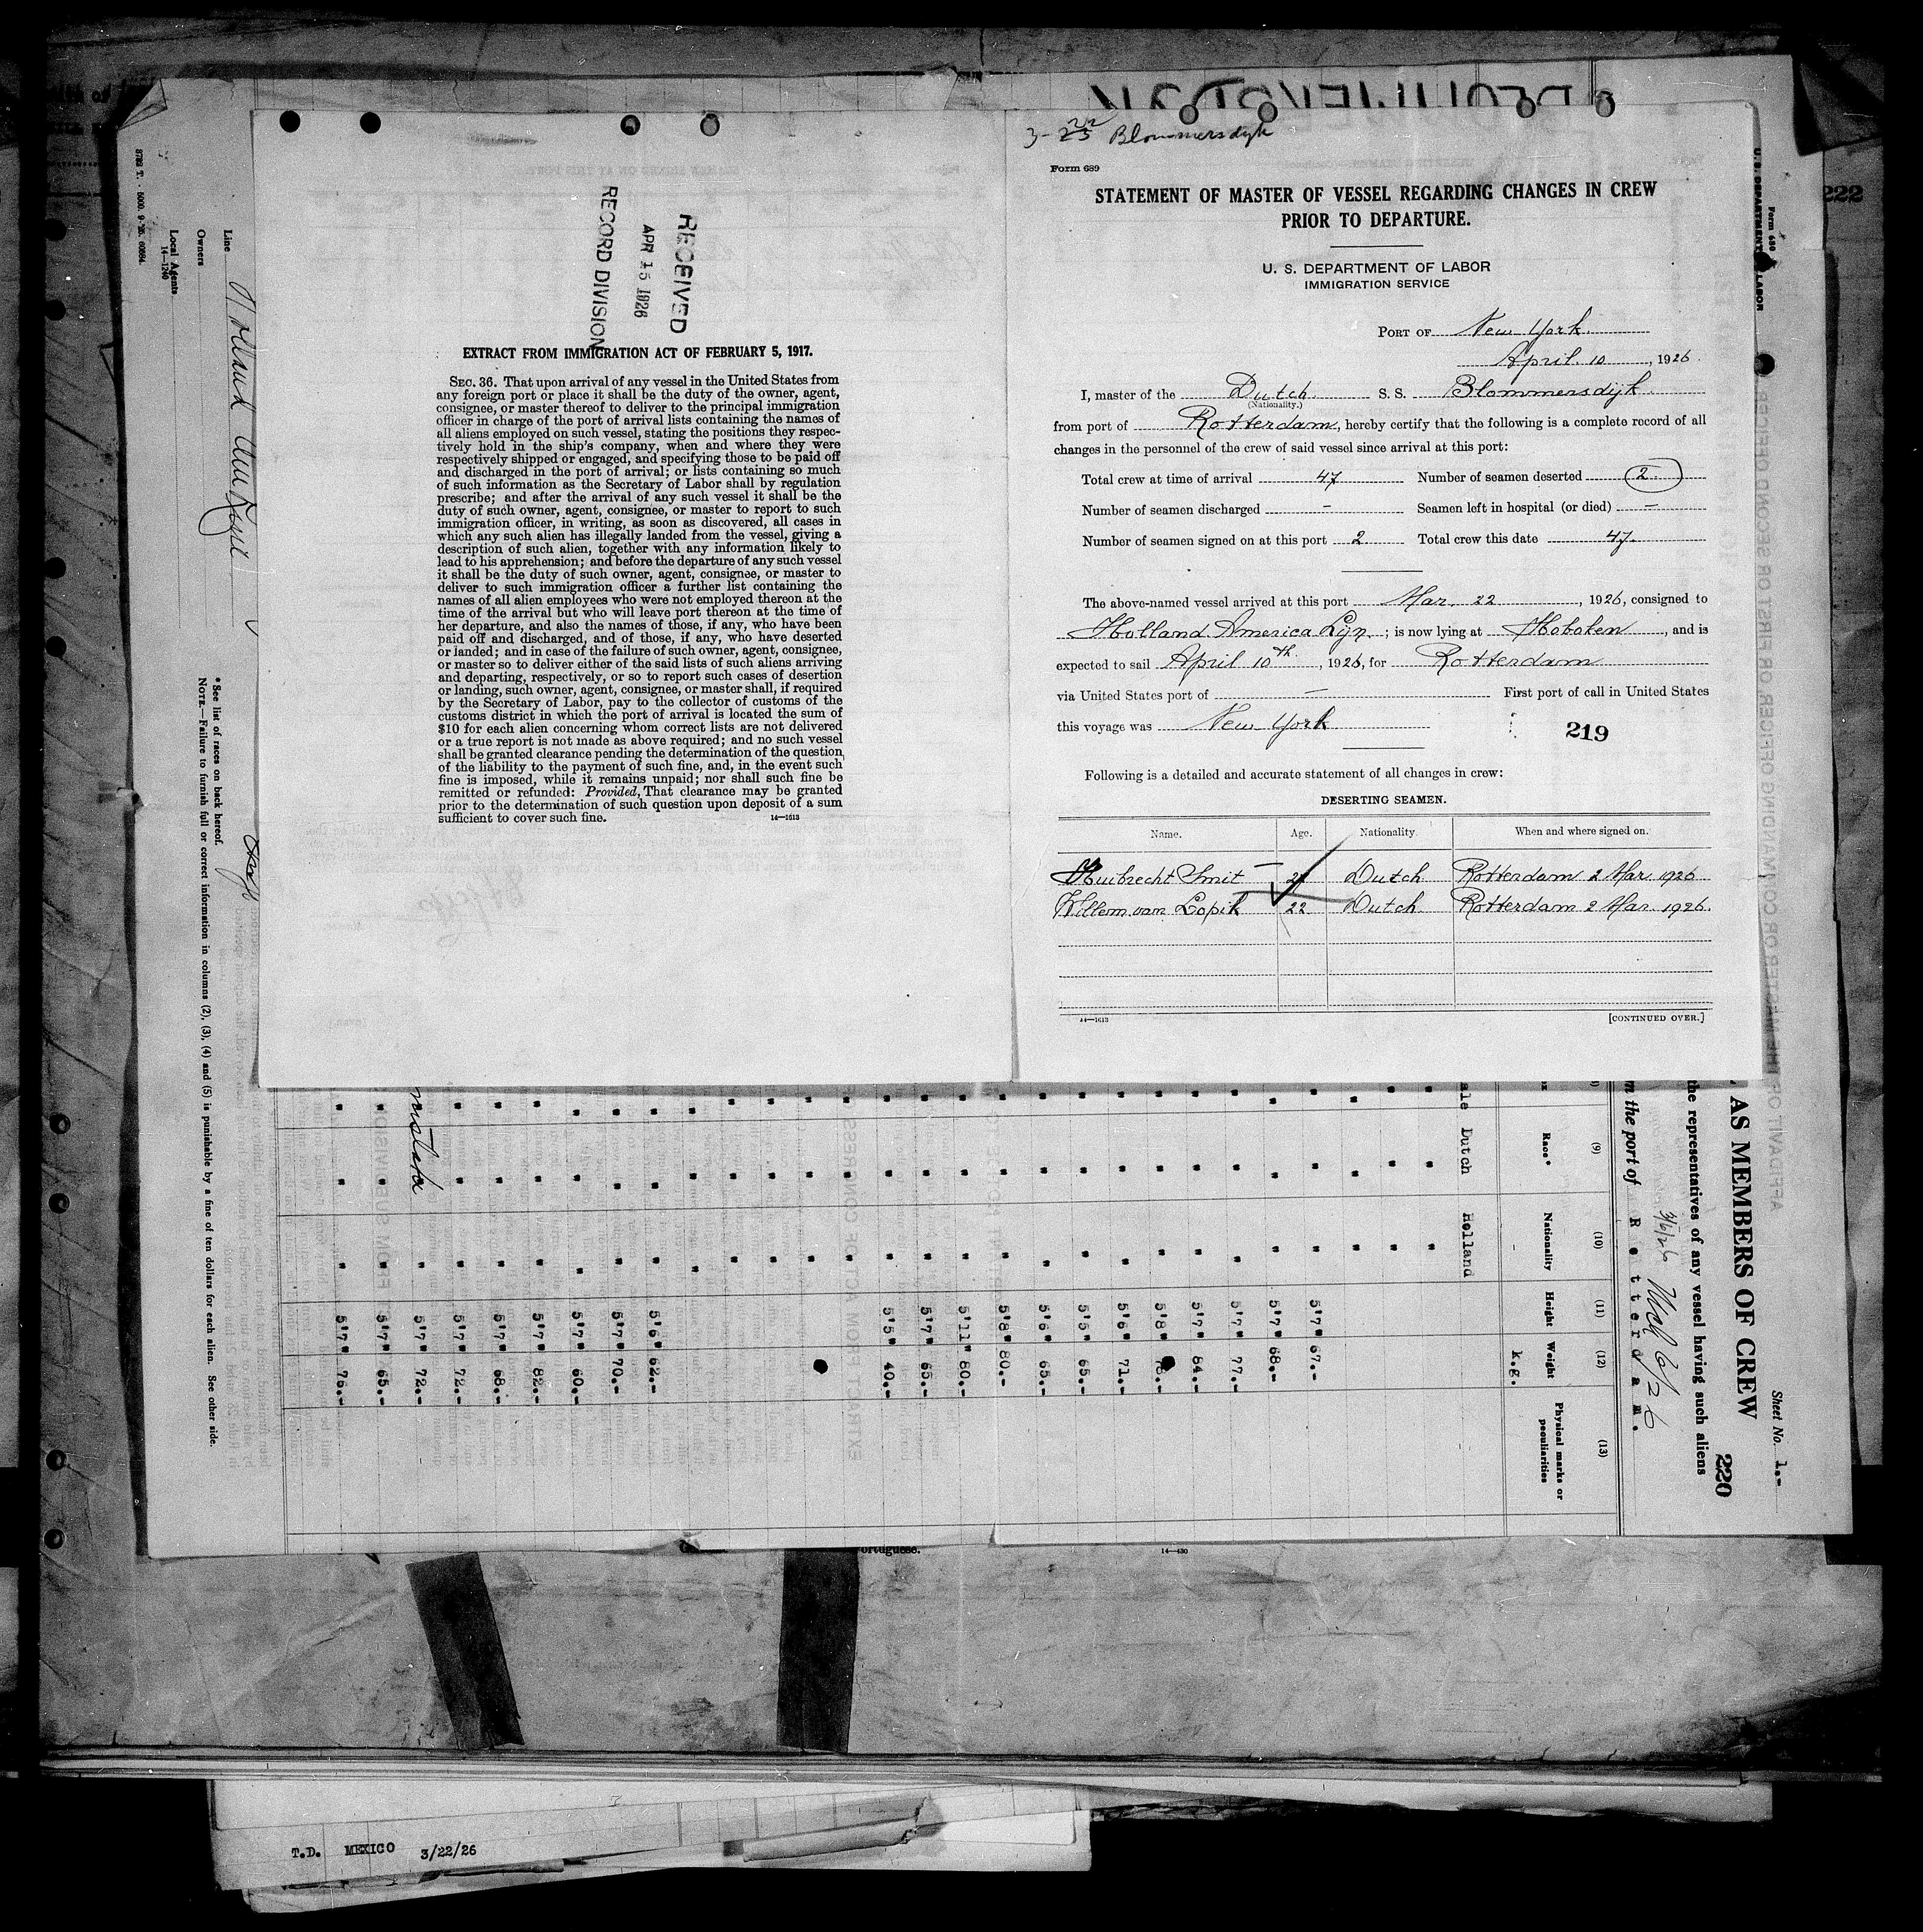 BLOMMERSDYK
3-22 Blommersdyk
Form 689
STATEMENT OF MASTER OF VESSEL REGARDING CHANGES IN CREW
PRIOR TO DEPARTURE.
U. S. DEPARTMENT OF LABOR
IMMIGRATION SERVICE
PORT OF New York
April 10, 1926
I, master of the Dutch S. S. Blommersdijk
(Nationality.)
from port of Rotterdam, hereby certify that the following is a complete record of all
changes in the personnel of the crew of said vessel since arrival at this port:
Total crew at time of arrival 47 Number of seamen deserted 2
Number of seamen discharged - Seamen left in hospital (or died) -
Number of seamen signed on at this port 2 Total crew this date 47
The above-named vessel arrived at this port Mar. 22, 1926, consigned to
Holland America Lijn; is now lying at Hoboken, and is
expected to sail April 10th, 1926, for Rotterdam
via United States port of - First port of call in United States
this voyage was New York
219
Following is a detailed and accurate statement of all changes in crew:
DESERTING SEAMEN.
Name. Age. Nationality. When and where signed on.
Huibrecht Smit Dutch Rotterdam 2 Mar. 1926
Willem van Lopik 22 Dutch Rotterdam 2 Mar. 1926.
14—1613 [CONTINUED OVER.]
RECEIVED
APR 15 1926
RECORD DIVISION
EXTRACT FROM IMMIGRATION ACT OF FEBRUARY 5, 1917.
SEC. 36. That upon arrival of any vessel in the United States from
any foreign port or place it shall be the duty of the owner, agent,
consignee, or master thereof to deliver to the principal immigration
officer in charge of the port of arrival lists containing the names of
all aliens employed on such vessel, stating the positions they respec-
tively hold in the ship's company, when and where they were
respectively shipped or engaged, and specifying those to be paid off
and discharged in the port of arrival; or lists containing so much
of such information as the Secretary of Labor shall by regulation
prescribe; and after the arrival of any such vessel it shall be the
duty of such owner, agent, consignee, or master to report to such
immigration officer, in writing, as soon as discovered, all cases in
which any such alien has illegally landed from the vessel, giving a
description of such alien, together with any information likely to
lead to his apprehension; and before the departure of any such vessel
it shall be the duty of such owner, agent, consignee, or master to
deliver to such immigration officer a further list containing the
names of all alien employees who were not employed thereon at the
time of the arrival but who will leave port thereon at the time of
her departure, and also the names of those, if any, who have been
paid off and discharged, and of those, if any, who have deserted
or landed; and in case of the failure of such owner, agent, consignee,
or master so to deliver either of the said lists of such aliens arriving
and departing, respectively, or so to report such cases of desertion
or landing, such owner, agent, consignee, or master shall, if required
by the Secretary of Labor, pay to the collector of customs of the
customs district in which the port of arrival is located the sum of
$10 for each alien concerning whom correct lists are not delivered
or a true report is not made as above required; and no such vessel
shall be granted clearance pending the determination of the question
of the liability to the payment of such fine, and, in the event such
fine is imposed, while it remains unpaid; nor shall such fine be
remitted or refunded: Provided, That clearance may be granted
prior to the determination of such question upon deposit of a sum
sufficient to cover such fine.
14—1613
222
Form 680
U. S. DEPARTMENT LABOR
Sheet No. 1.-
AS MEMBERS OF CREW 220
the representatives of any vessel having such aliens
in the port of Rotterdam.
3/6/26
(9) (10) (11) (12) (13)
Race* Nationality Height Weight Physical marks or peculiarities
k.g.
ale Dutch Holland
5'7" 67.-
5'7" 68.-
5'7" 77.-
5'7" 84.-
5'8"
5'6" 71.-
5'5" 65.-
5'6" 65.-
5'8" 80.-
5'11" 80.-
5'7" 65.-
5'5" 40.-
5'6" 62.-
5'7" 70.-
5'7" 60.-
5'7" 82.-
5'7" 68.-
5'7" 72.-
5'7" 72.-
5'7" 65.-
5'7" 76.-
Line Holland
Owners
Local Agents
14—1240
* See list of races on back hereof.
NOTE.—Failure to furnish full or correct information in columns (2), (3), (4) and (5) is punishable by a fine of ten dollars for each alien. See other side.
ortuguese.
14—430
T.D. MEXICO 3/22/26